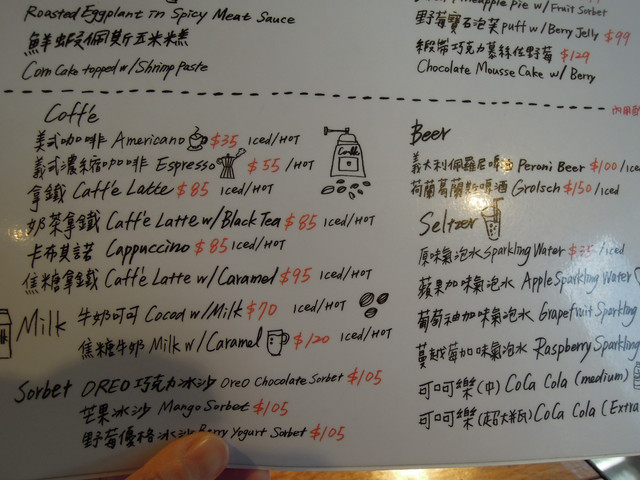 Roasted Eggplant in Spicy Meat Sauce
鮮蝦佩斯玉米糕
Corn Cake topped w/Shrimp Paste
Pineapple Pie w/ Fruit Sorbet
野莓寶石泡芙 Puff w/ Berry Jelly $99
緞帶巧克力慕絲佐野莓 $129
Chocolate Mousse Cake w/ Berry
Caff'e
美式咖啡 Americano $35 Iced/HOT
義式濃縮咖啡 Espresso $55 /HOT
拿鐵 Caff'e Latte $85 Iced/HOT
奶茶拿鐵 Caff'e Latte w/Black Tea $85 Iced/HOT
卡布其諾 Cappuccino $85 Iced/HOT
焦糖拿鐵 Caff'e Latte w/Caramel $95 Iced/HOT
Milk 牛奶可可 Cocoa w/Milk $70 Iced/HOT
焦糖牛奶 Milk w/Caramel $120 Iced/HOT
Sorbet OREO巧克力冰沙 Oreo Chocolate Sorbet $105
芒果冰沙 Mango Sorbet $105
野莓優格冰沙 Berry Yogurt Sorbet $105
內用
Beer
義大利佩羅尼啤酒 Peroni Beer $100/Iced
荷蘭葛蘭斯啤酒 Grolsch $150/Iced
Seltzer
原味氣泡水 Sparkling Water $35/Iced
蘋果加味氣泡水 Apple Sparkling Water
葡萄柚加味氣泡水 Grapefruit Sparkling
蔓越莓加味氣泡水 Raspberry Sparkling
可口可樂(中) CoCa Cola (medium)
可口可樂(超大瓶) CoCa Cola (Extra